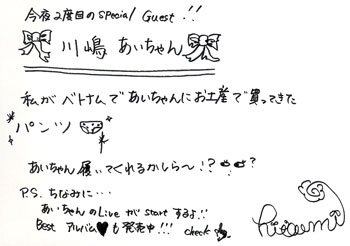 今夜2度目のSpecial Guest!!
川嶋 あいちゃん
私がベトナムであいちゃんにお土産で買ってきた
パンツ
あいちゃん履いてくれるかしら〜!?
?
P.S. ちなみに…
あいちゃんのLiveがstartするよ!!
Best アルバム♥も発売中!!! check
hiroumi